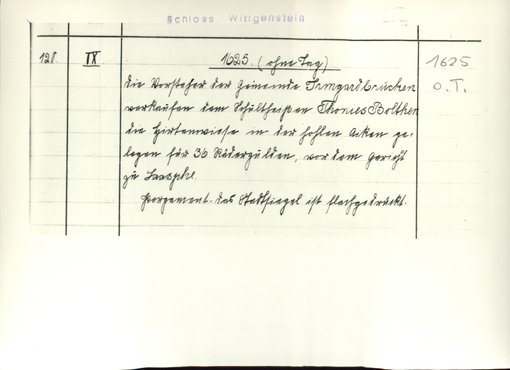 Schloss Wittgenstein
128. IX 1625. (ohne Tag) 1625
Die Vorsteher der Gemeinde Irmgardbrücken o.T.
verkaufen dem Schultheißen Thonies Bolthen
die Hirtenwiese in der hohlen Acken ge-
legen für 30 Rädergulden, vor dem Gericht
zu Laasphe.
Pergament. Das Stadtsiegel ist flachgedrückt.